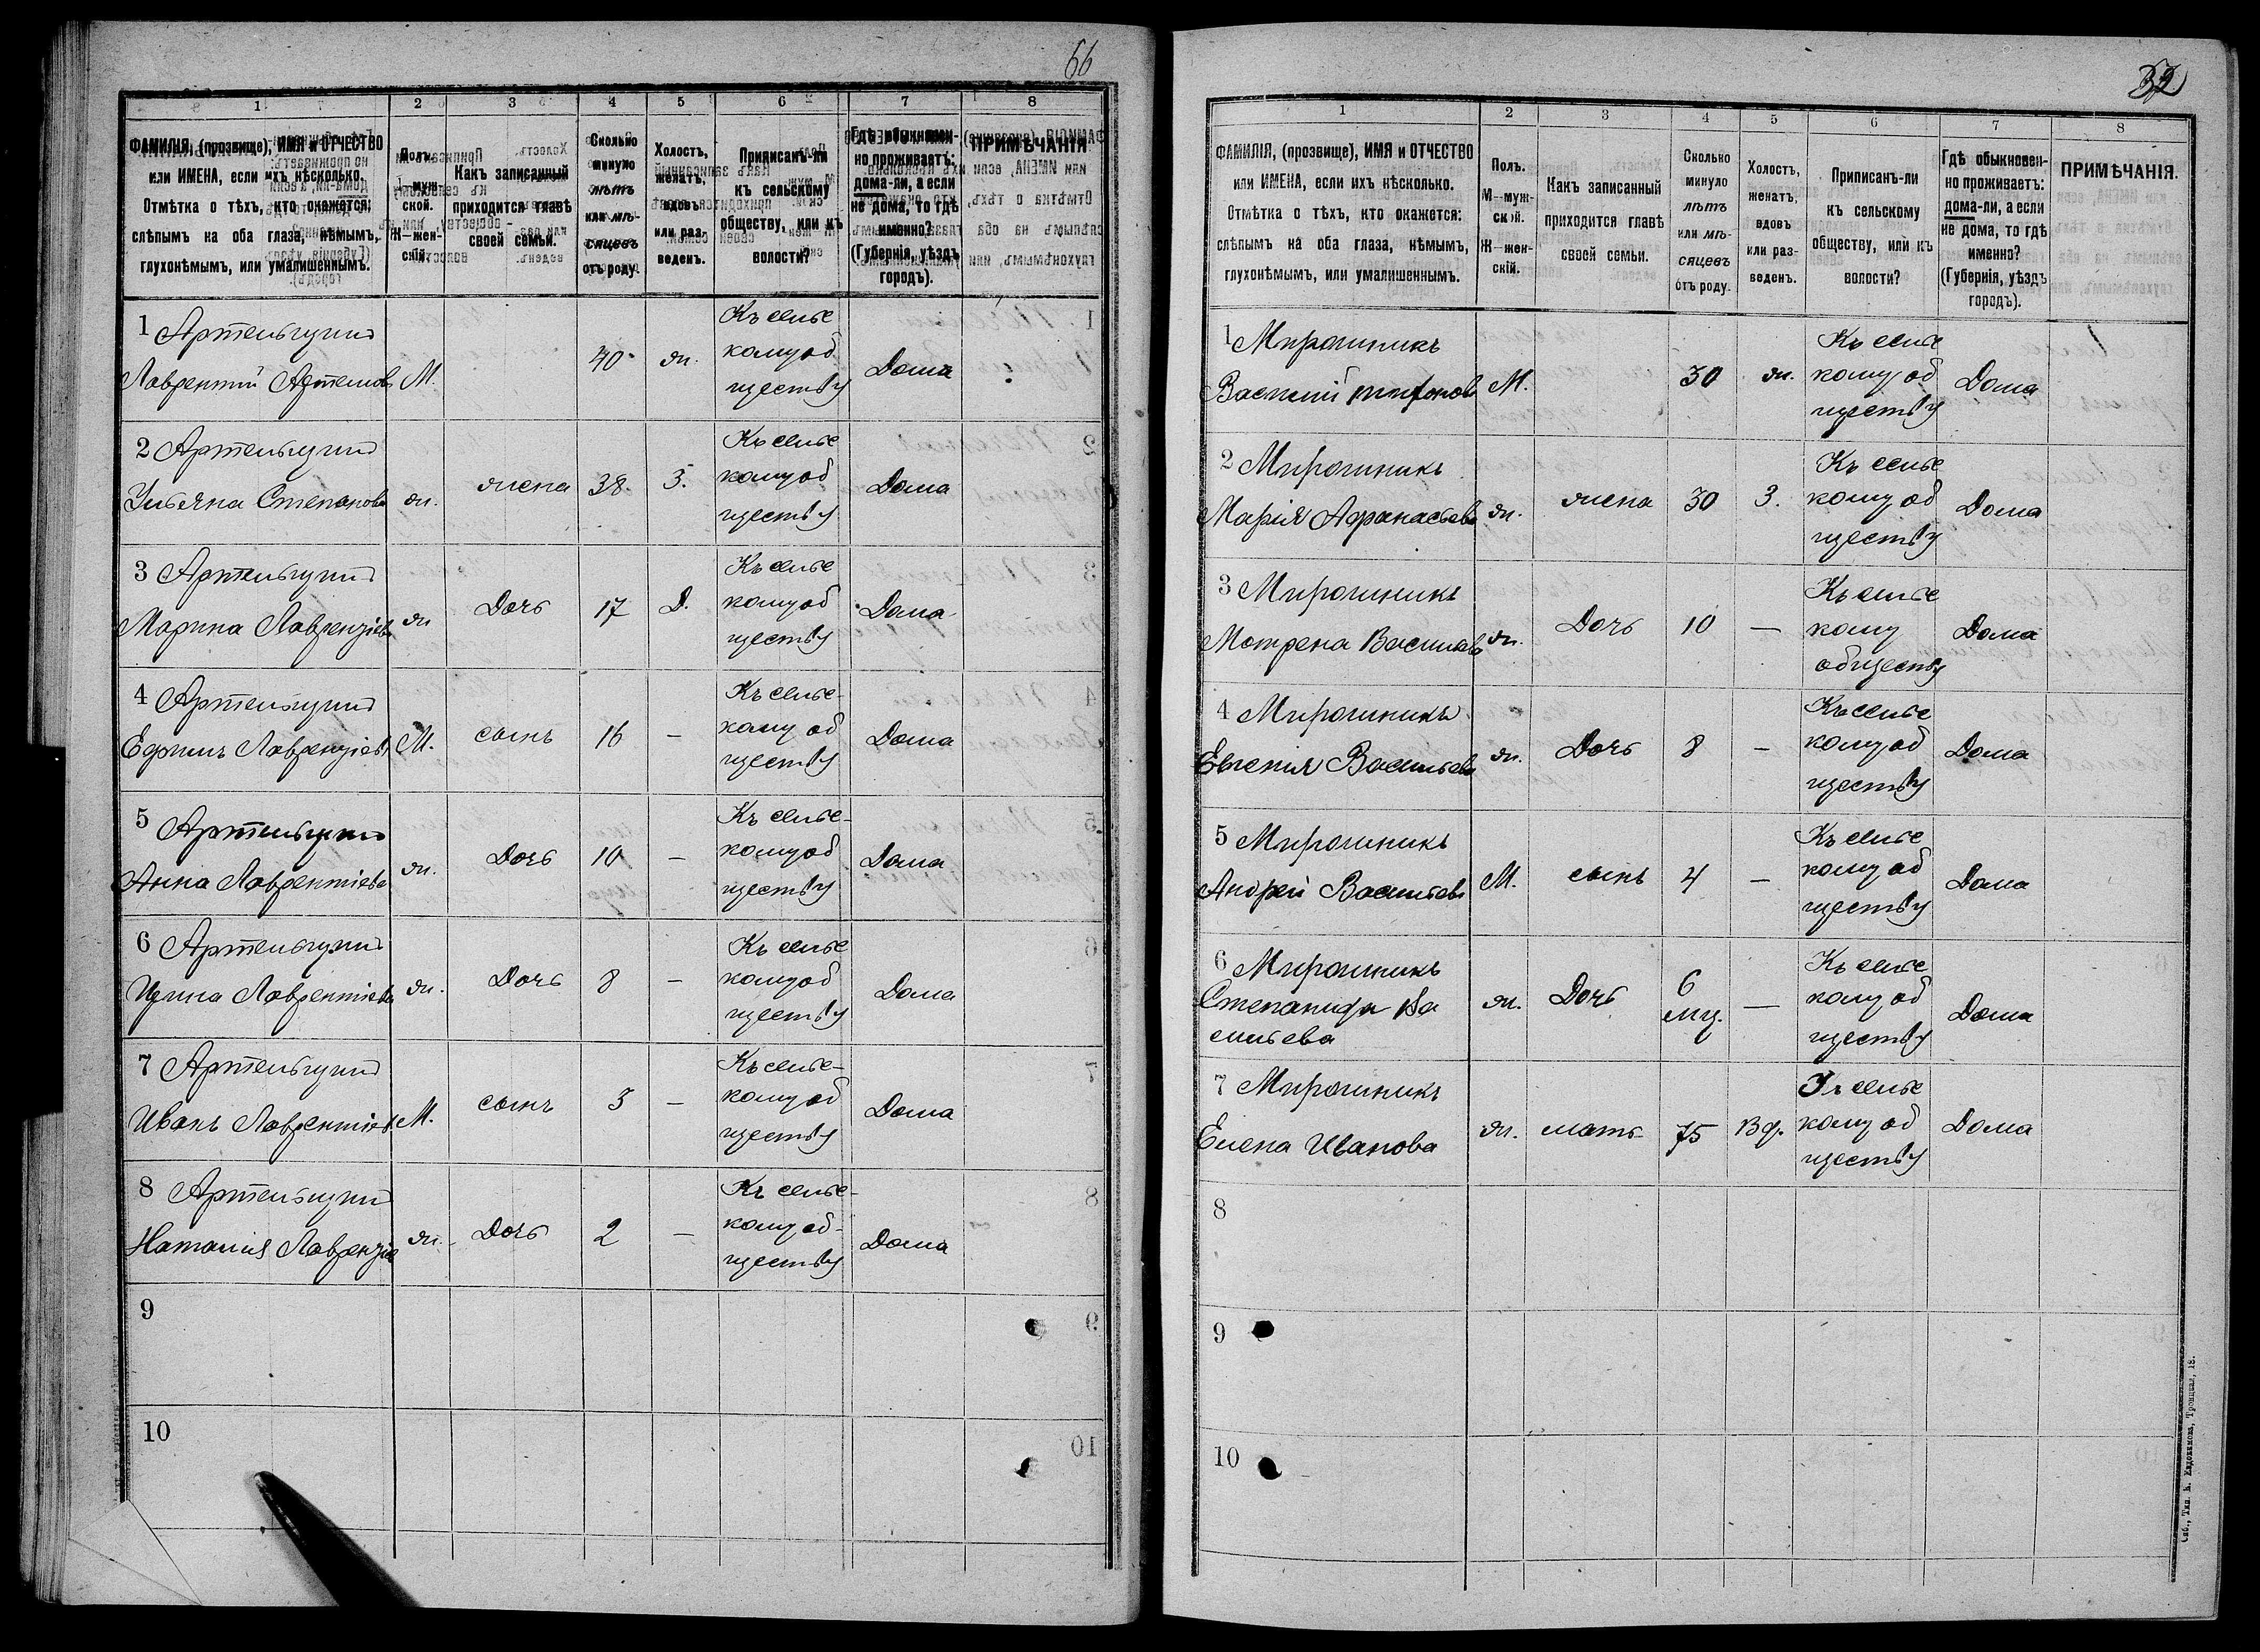 66
1 2 3 4 5 6 7 8
ФАМИЛІЯ, (прозвище), ИМЯ и ОТЧЕСТВО
или ИМЕНА, если ихъ нѣсколько.
Отмѣтка о тѣхъ, кто окажется:
слѣпымъ на оба глаза, нѣмымъ,
глухонѣмымъ, или умалишеннымъ.
Полъ.
М—муж-
ской.
Ж—жен-
скій.
Какъ записанный
приходится главѣ
своей семьи.
Сколько
минуло
лѣтъ
или мѣ-
сяцевъ
отъ роду.
Холостъ,
женатъ,
вдовъ
или раз-
веденъ.
Приписанъ-ли
къ сельскому
обществу, или къ
волости?
Гдѣ обыкновен-
но проживаетъ:
дома-ли, а если
не дома, то гдѣ
именно?
(Губернія, уѣздъ
городъ).
ПРИМѢЧАНІЯ
1
Лаврентій Артемовъ М. 40 ж. Къ сельс
кому об
ществу Дома
2
Ульяна Степанова ж. жена 38 З. Къ сельс
кому об
ществу Дома
3
Марина Лаврензіева ж. Дочь 17 Д. Къ сельс
кому об
ществу Дома
4
Ефимъ Лаврензіевъ М. сынъ 16 — Къ сельс-
кому об
ществу Дома
5
Анна Лаврентіева ж. Дочь 10 — Къ сельс-
кому об
ществу Дома
6
Ирина Лаврентіева ж. Дочь 8 — Къ сельс
кому об
ществу Дома
7
Иванъ Лаврентіевъ М. сынъ 3 — Къ сельс-
кому об
ществу Дома
8
Наталія Лаврензіе ж. Дочь 2 — Къ сельс-
кому об-
ществу Дома
9
10
1 2 3 4 5 6 7 8
ФАМИЛІЯ, (прозвище), ИМЯ и ОТЧЕСТВО
или ИМЕНА, если ихъ нѣсколько.
Отмѣтка о тѣхъ, кто окажется:
слѣпымъ на оба глаза, нѣмымъ,
глухонѣмымъ, или умалишеннымъ.
Полъ.
М—муж-
ской.
Ж—жен-
скій.
Какъ записанный
приходится главѣ
своей семьи.
Сколько
минуло
лѣтъ
или мѣ-
сяцевъ
отъ роду.
Холостъ,
женатъ,
вдовъ
или раз-
веденъ.
Приписанъ-ли
къ сельскому
обществу, или къ
волости?
Гдѣ обыкновен-
но проживаетъ:
дома-ли, а если
не дома, то гдѣ
именно?
(Губернія, уѣздъ
городъ).
ПРИМѢЧАНІЯ.
1 Мирошникъ
Василій М. 30 ж. Къ сельс
кому об
ществу Дома
2 Мирошникъ
Марія Афанасьева ж. жена 30 З. Къ сельс
кому об
ществу Дома
3 Мирошникъ
Мотрена Васильев ж. Дочь 10 — Къ сельс
кому
обществу Дома
4 Мирошникъ
Евгенія Васильева ж. Дочь 8 — Къ сельс
кому об
ществу Дома
5 Мирошникъ
Андрей Васильевъ М. сынъ 4 — Къ сельс
кому об
ществу Дома
6 Мирошникъ
Степанида Ва
сильева ж. Дочь 6
мц. — Къ сельс
кому об
ществу Дома
7 Мирошникъ
Елена Иванова ж. мать 75 Вд. Къ сельс
кому об
ществу Дома
8
9
10
Спб., Тип. Е. Евдокимова, Троицкая, 18.